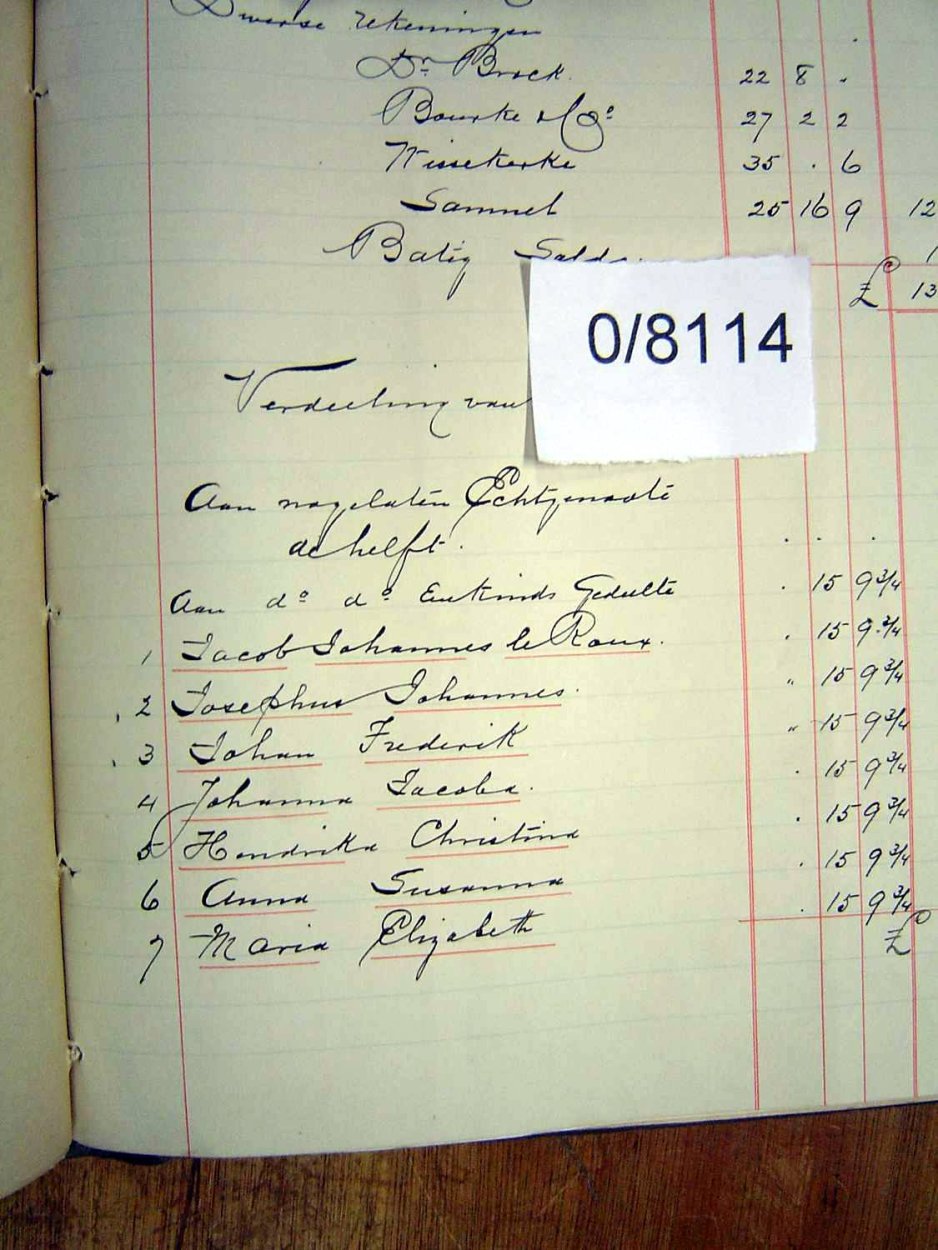 Diverse rekeningen
Dr. Brock. 22 8 "
Bourke & Co. 27 2 2
Wissekerke 35 . 6
Samuel 25 16 9 12
Batig Saldo
£ 13
0/8114
Verdeeling van
Aan nagelaten Echtgenoote
de helft.
Aan do do een Kinds Gedeelte . 15 9 3/4
1 Jacob Johannes le Roux. . 15 9 3/4
2 Josephus Johannes. " 15 9 3/4
3 Johan Frederik " 15 9 3/4
4 Johanna Jacoba. . 15 9 3/4
5 Hendrika Christina . 15 9 3/4
6 Anna Susanna . 15 9 3/4
7 Maria Elizabeth . 15 9 3/4
£